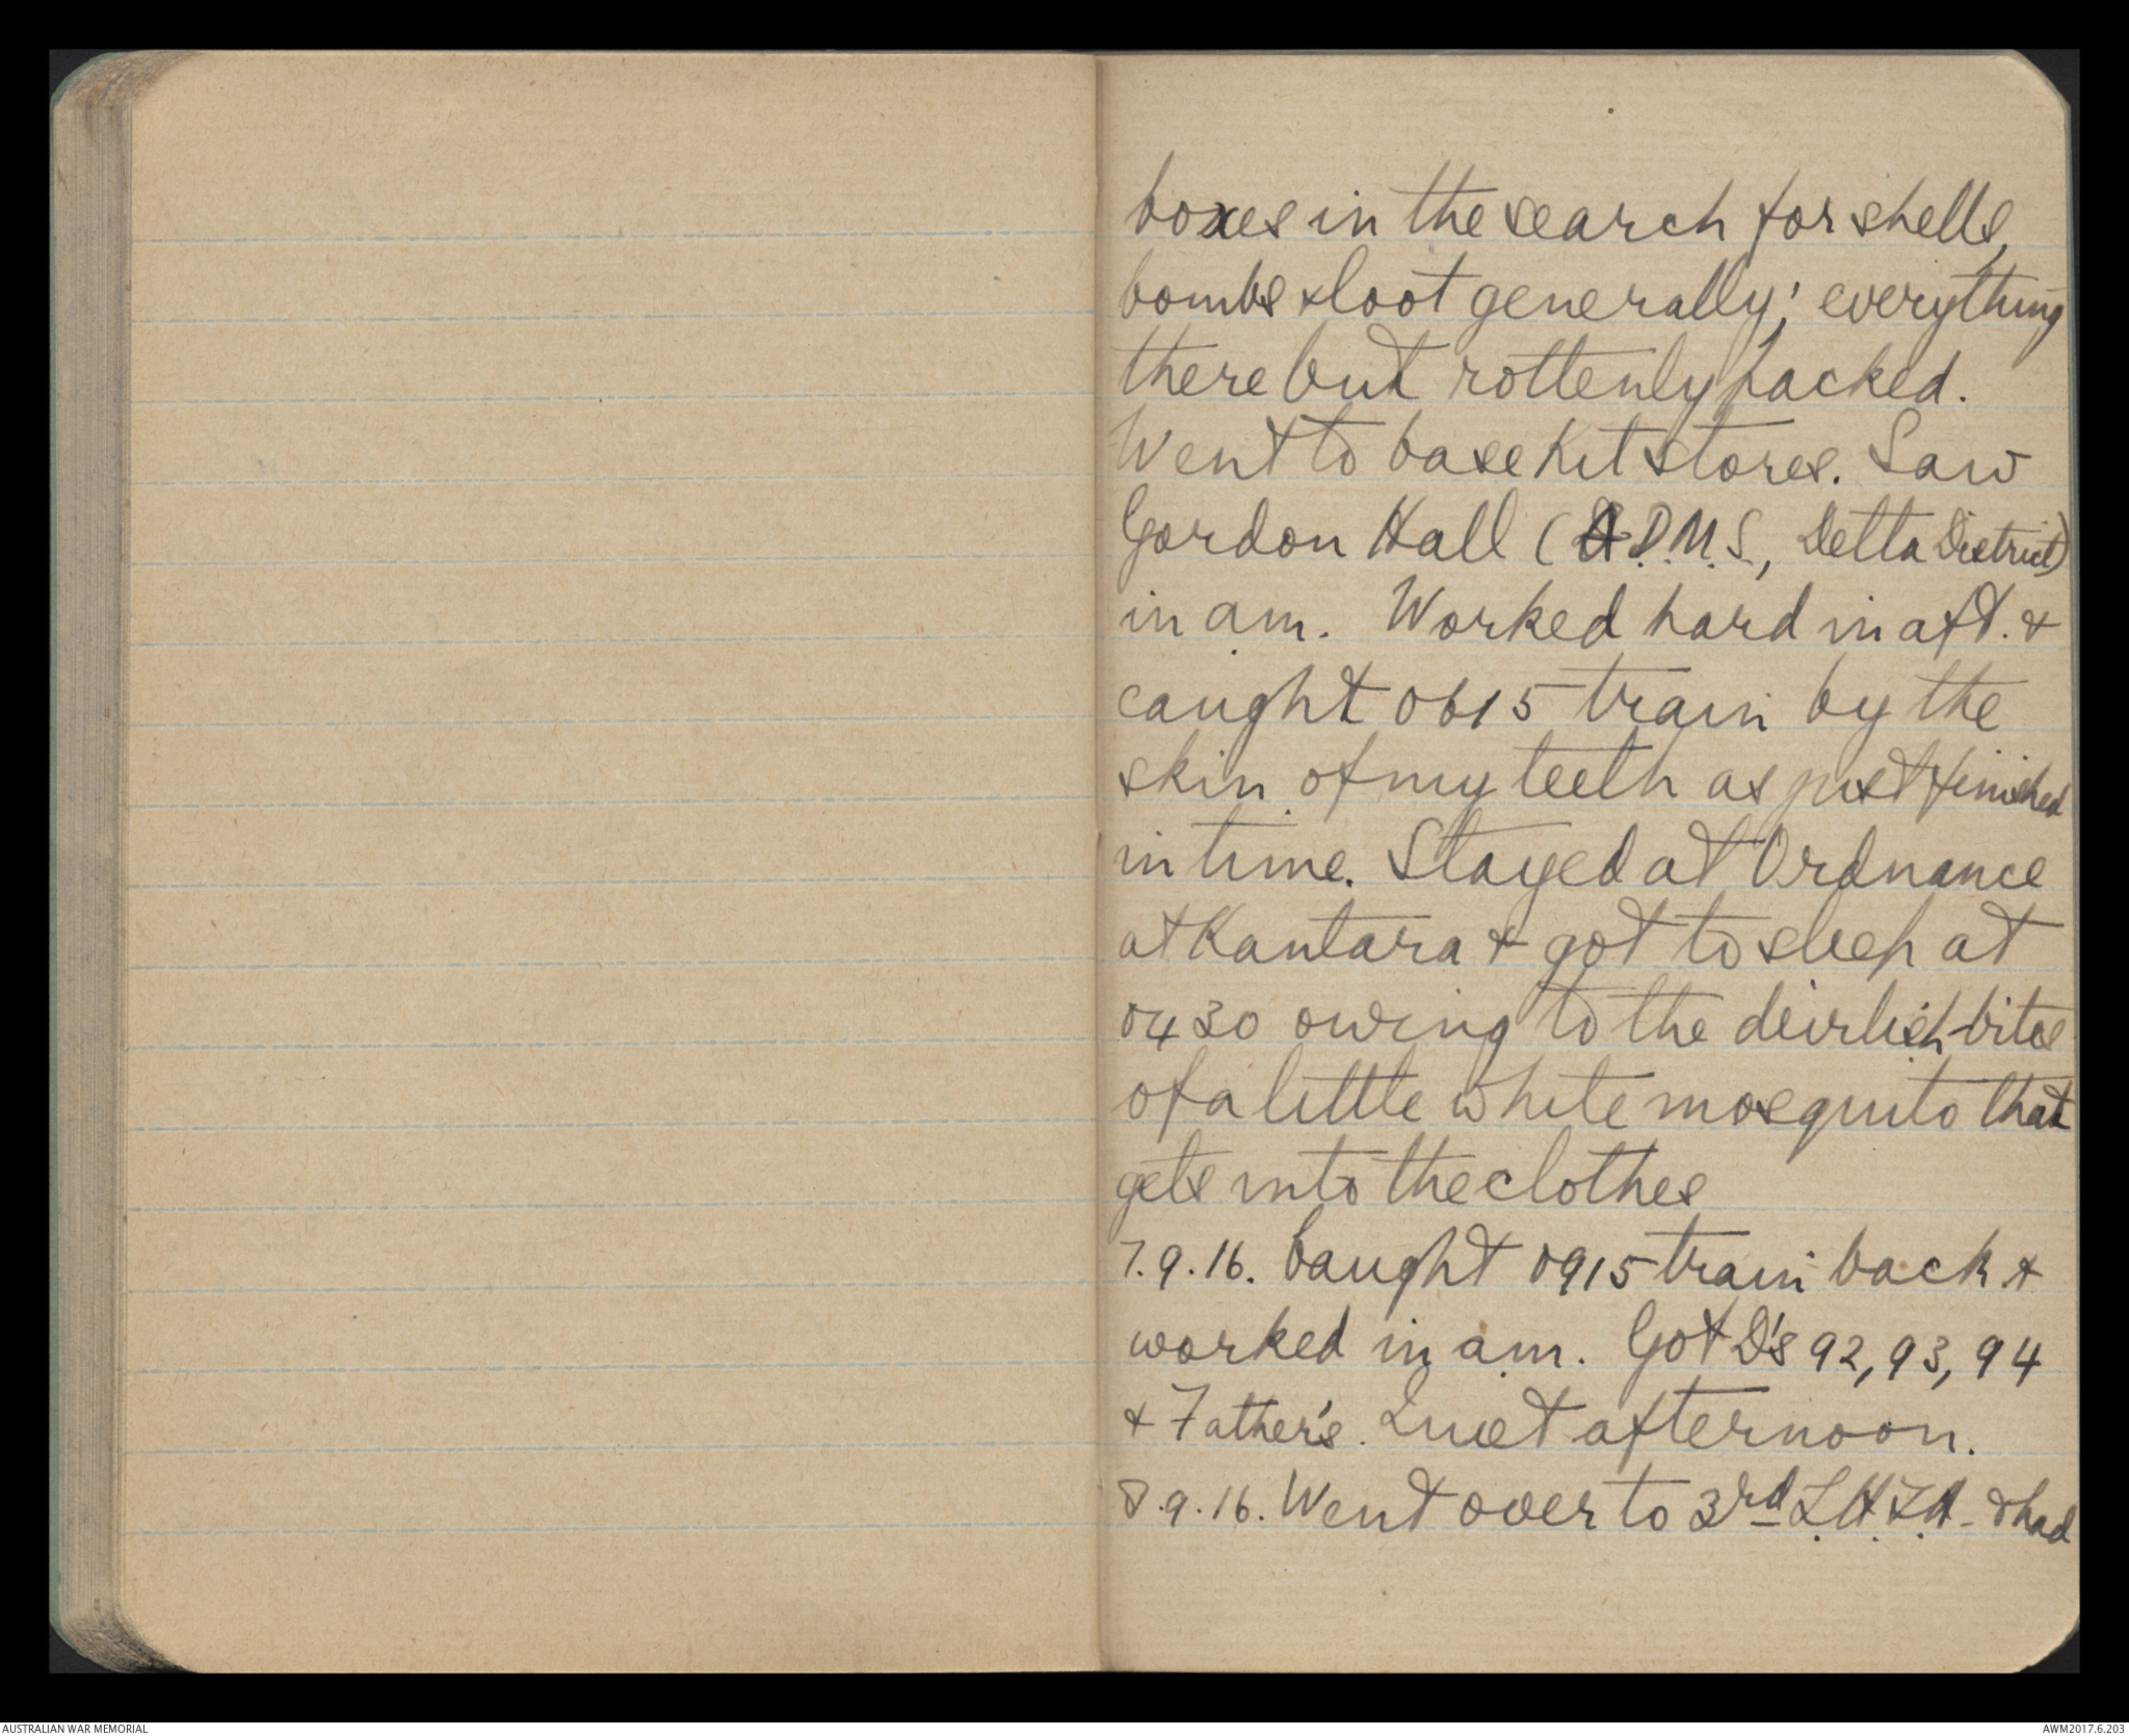 boxes in the search for shells,
bombs & loot generally; everything
there but rottenly packed.
Went to base Kit stores. Saw
Gordon Hall (A.D.M.S., Delta District)
in a.m. Worked hard in aft. &
caught 0615 train by the
skin of my teeth as just finished
in time. Stayed at Ordnance
at Kantara & got to sleep at
0430 owing to the devilish bites
of a little white mosquito that
gets into the clothes
7.9.16. Caught 0915 train back &
worked in a.m. Got D's 92, 93, 94
& Father's. Quiet afternoon.
8.9.16. Went over to 3rd L.H.F.A. & had
AUSTRALIAN WAR MEMORIAL
AWM2017.6.203